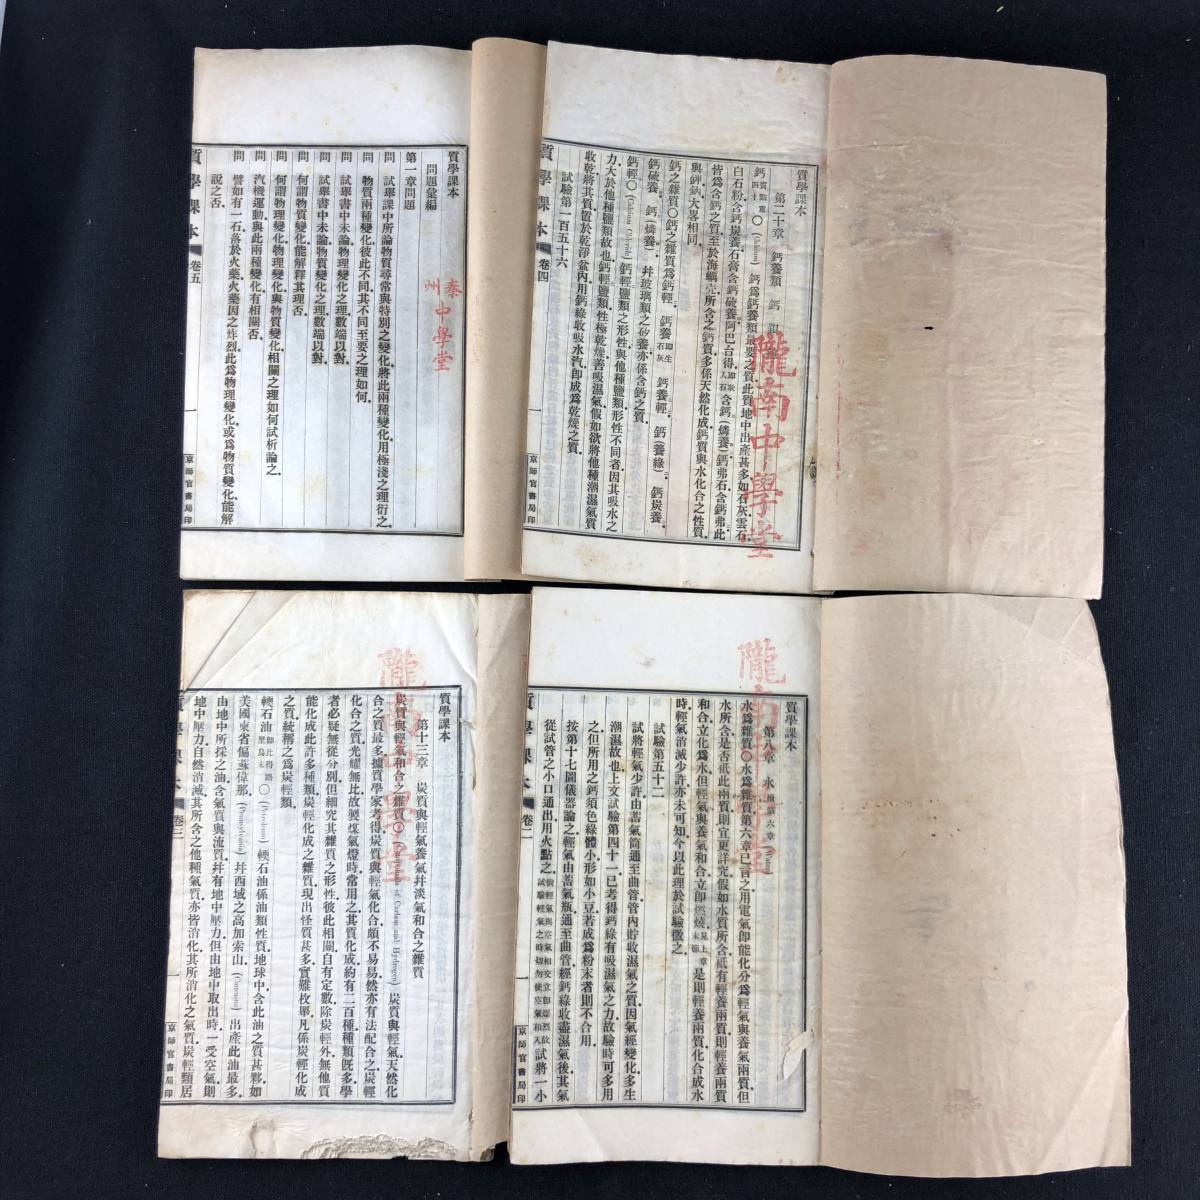 質學課本
問題彙編
第一章問題
問 試舉課中所論物質尋常與特別之變化將此兩種變化用極淺之理衍之
問 物質兩種變化彼此不同其不同至要之理如何
問 試舉書中未論物質變化之理數端以對
問 試舉書中未論物理變化之理數端以對
問 何謂物質變化能解釋其理否
問 何謂物理變化物理變化與物質變化相關之理如何試析論之
問 汽機運動與此兩種變化有相關否
問 譬如有一石落於火藥火藥因之炸烈此為物理變化或為物質變化能解
說之否
質學課本 卷五 一 京師官書局印
秦州中學堂
質學課本
第二十章 鈣養類 鈣
鈣 質點重四十 ○ (Calcium) 鈣為鈣養類最要之質此質地中出產甚多如石灰雲石
白石粉含鈣炭養石膏含鈣硫養阿巴台得 含鈣(燐養)鈣弗石含鈣弗此
皆為含鈣之質至於海螄壳所含之鈣質多係天然化成鈣質與水化合之性質
與鉀鈉大畧相同
鈣之雜質○鈣之雜質為鈣輕 鈣養 即生石灰 鈣養輕 鈣(養綠) 鈣炭養
鈣硫養 鈣(燐養) 幷玻璃類之矽養亦係含鈣之質
鈣輕○(Calcium Chloride)鈣輕鹽類之形性與他種鹽類形性不同者因其吸水之
力大於他種鹽類故也鈣輕鹽類性極乾燥善吸濕氣假如欲將他種潮濕氣質
收乾將其質置於乾淨盆內用鈣綠收吸水汽即成為乾燥之質
試驗第一百五十六
質學課本 卷四 一 京師官書局印
隴南中學堂
質學課本
第十三章 炭質與輕氣養氣幷淡氣和合之雜質
炭質與輕氣和合之雜質○(Compounds of Carbon and Hydrogen) 炭質與輕氣天然化
合之質最多據質學家考得炭質與輕氣化合頗不易易然亦有法配合之炭輕
化合之質光耀無比故製煤氣燈時常用之其質化成約有二百種種類旣多學
者必疑無從分別但細究其雜質之形性彼此相關自有定數除炭輕外無他質
能化成此許多種類炭輕化成之雜質現出怪質甚多實難枚舉凡係炭輕化成
之質統稱之為炭輕類
輭石油 ○(Petroleum) 輭石油係油類性質地球中含此油之質甚夥如
美國東省偏蘇偉那(Pennsylvania)幷西域之高加索山(Caucasus)出產此油最多
由地中所採之油含氣質與流質幷有地中壓力但由地中取出時一受空氣則
地中壓力自然消減其所含之他種氣質亦皆消化其所消化之氣質炭輕類居
質學課本 卷三 一 京師官書局印
質學課本
第八章 水 (Water)
水為雜質○水為雜質第六章已言之用電氣即能化分為輕氣與養氣兩質但
水所含是否祇此兩質則宜更詳究假如水質所含祇有輕養兩質則輕養兩質
和合立化為水但輕氣與養氣和合立即燃燒 見上章末節 是則輕養兩質化合成水
時輕氣消滅少許亦未可知今以此理於試驗徵之
試驗第五十二
試將輕氣少許由蓄氣筒通至曲管管內貯收濕氣之質因氣經變化多生
潮濕故也上文試驗第四十一已考得鈣綠有吸濕氣之力故驗時可多用
之但所用之鈣須色綠體小形如小豆若成為粉末者則不合用
按第十七圖儀器論之輕氣由蓄氣瓶通至曲管經鈣綠收盡濕氣後其氣
從試管之小口通出用火點之 惟輕氣與空氣相交立即爆烈故試驗輕氣之時切勿使空氣和入 試將一小
質學課本 卷二 一 京師官書局印